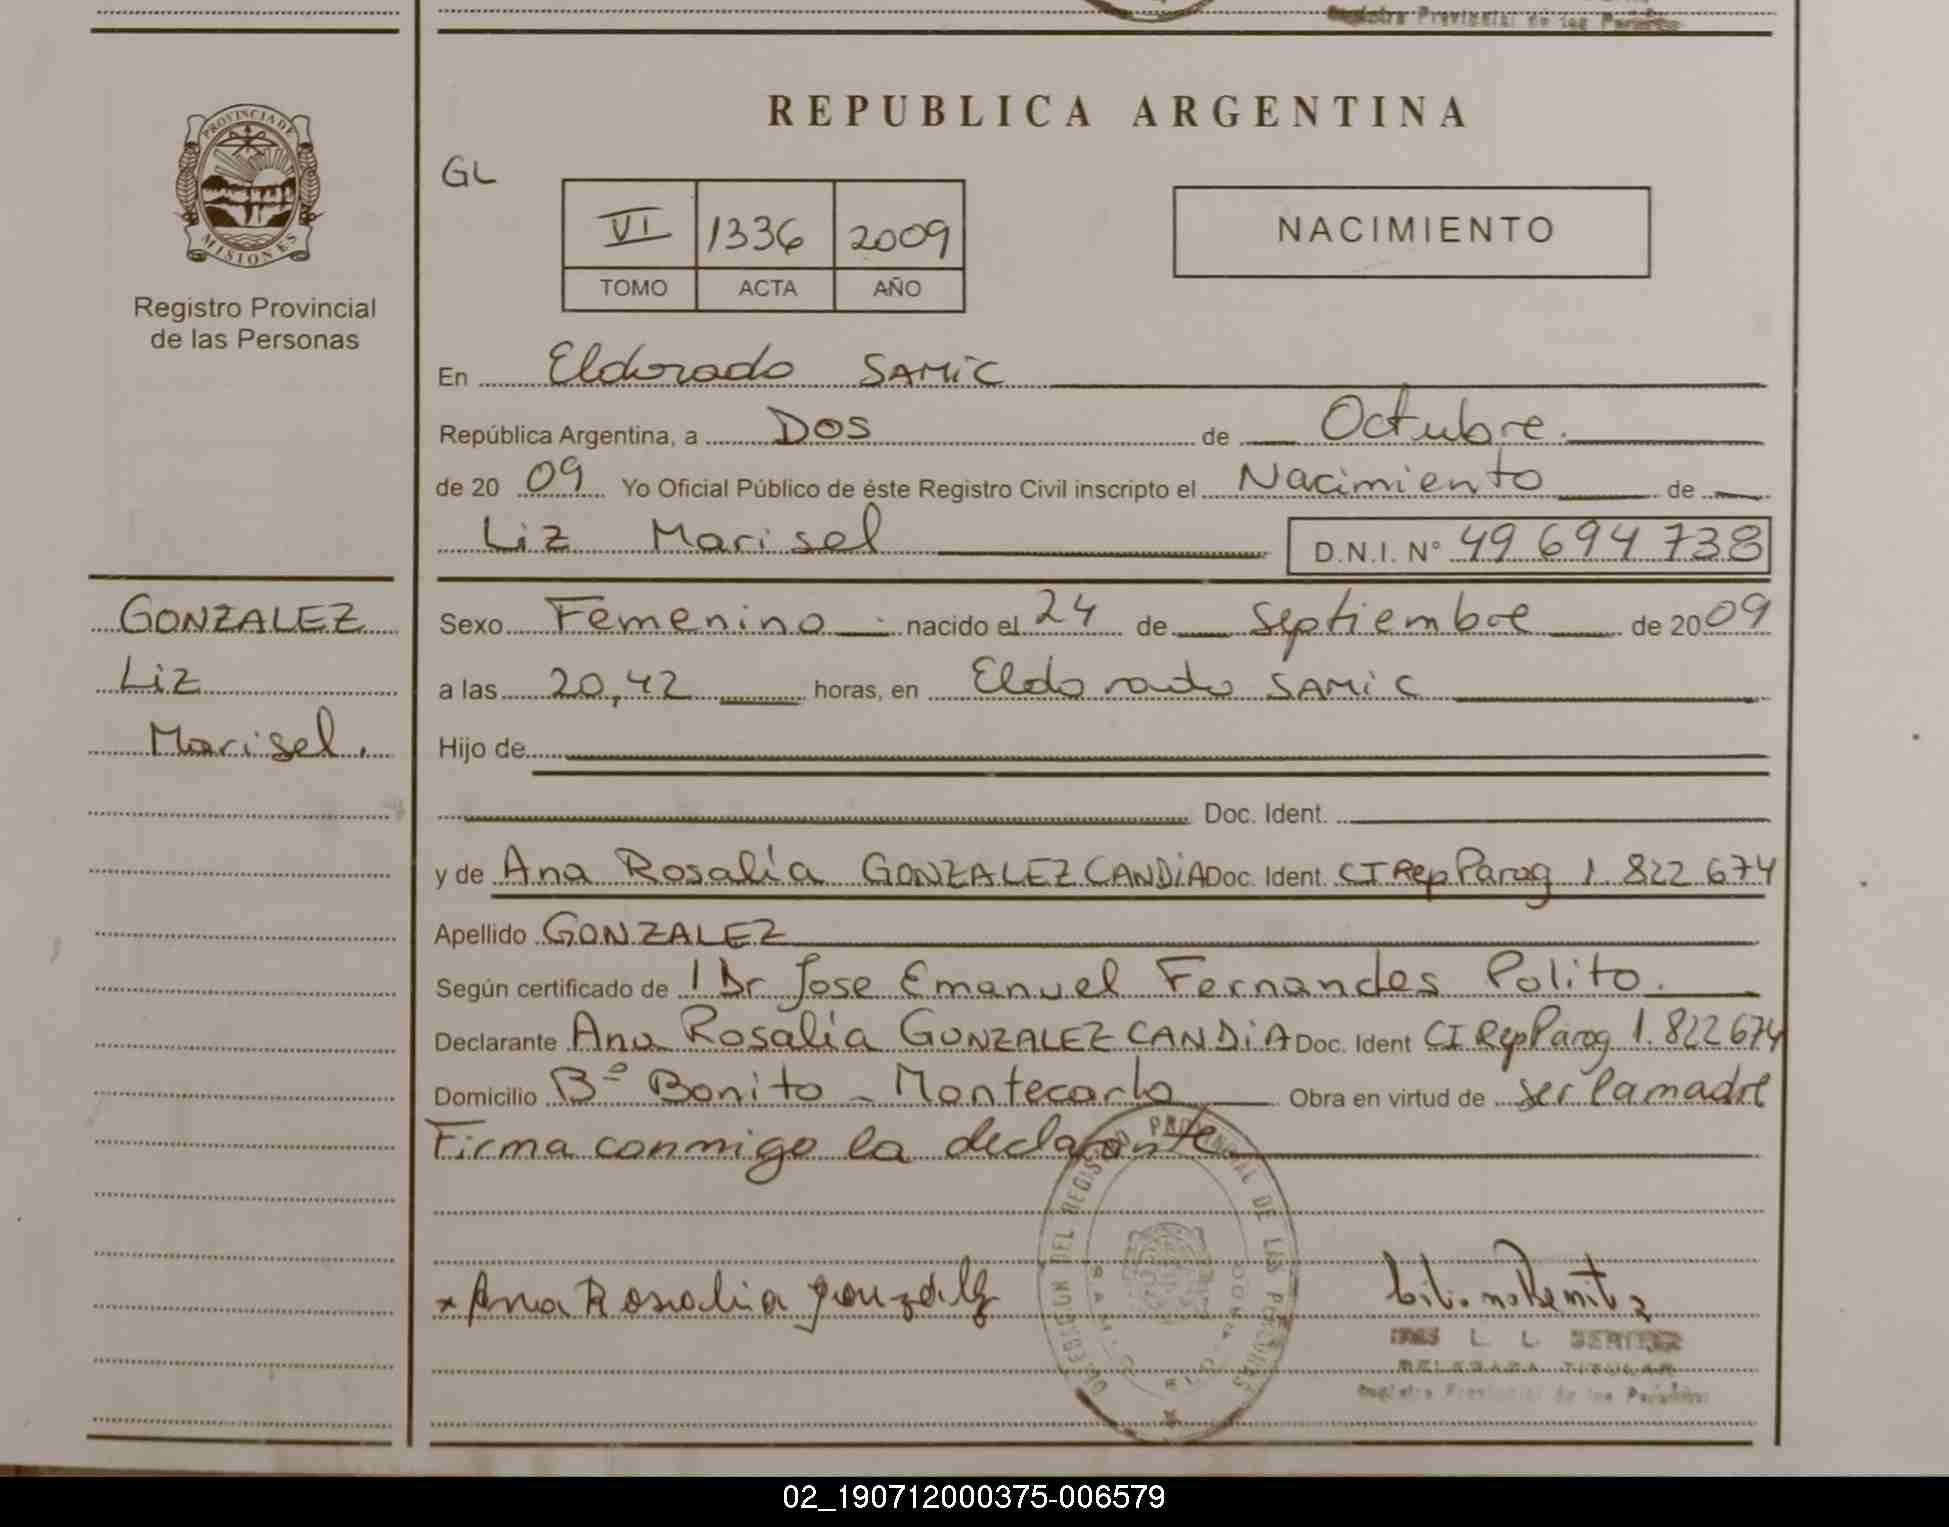 Registro Provincial de las Personas
PROVINCIA DE
MISIONES
Registro Provincial
de las Personas
REPUBLICA ARGENTINA
GL
VI 1336 2009
TOMO ACTA AÑO
NACIMIENTO
En Eldorado SAMIC
República Argentina, a DOS de Octubre.
de 20 09 Yo Oficial Público de éste Registro Civil inscripto el Nacimiento de
Liz Marisel D.N.I. N° 49 694 738
GONZALEZ
Liz
Marisel.
Sexo Femenino nacido el 24 de Septiembre de 20 09
a las 20,42 horas, en Eldorado SAMIC
Hijo de
Doc. Ident.
y de Ana Rosalía GONZALEZ CANDIA Doc. Ident. CI Rep Parag 1.822 674
Apellido GONZALEZ
Según certificado de l Dr Jose Emanuel Fernandes Polito.
Declarante Ana Rosalía GONZALEZ CANDIA Doc. Ident CI Rep Parag 1.822 674
Domicilio B° Bonito - Montecarlo Obra en virtud de ser la madre
Firma conmigo la declarante
x Ana Rosalia gonzalez
L L BENITEZ
DELEGADA TITULAR
Registro Provincial de las Personas
DEL REGISTRO PROVINCIAL DE LAS PERSONAS
02_190712000375-006579